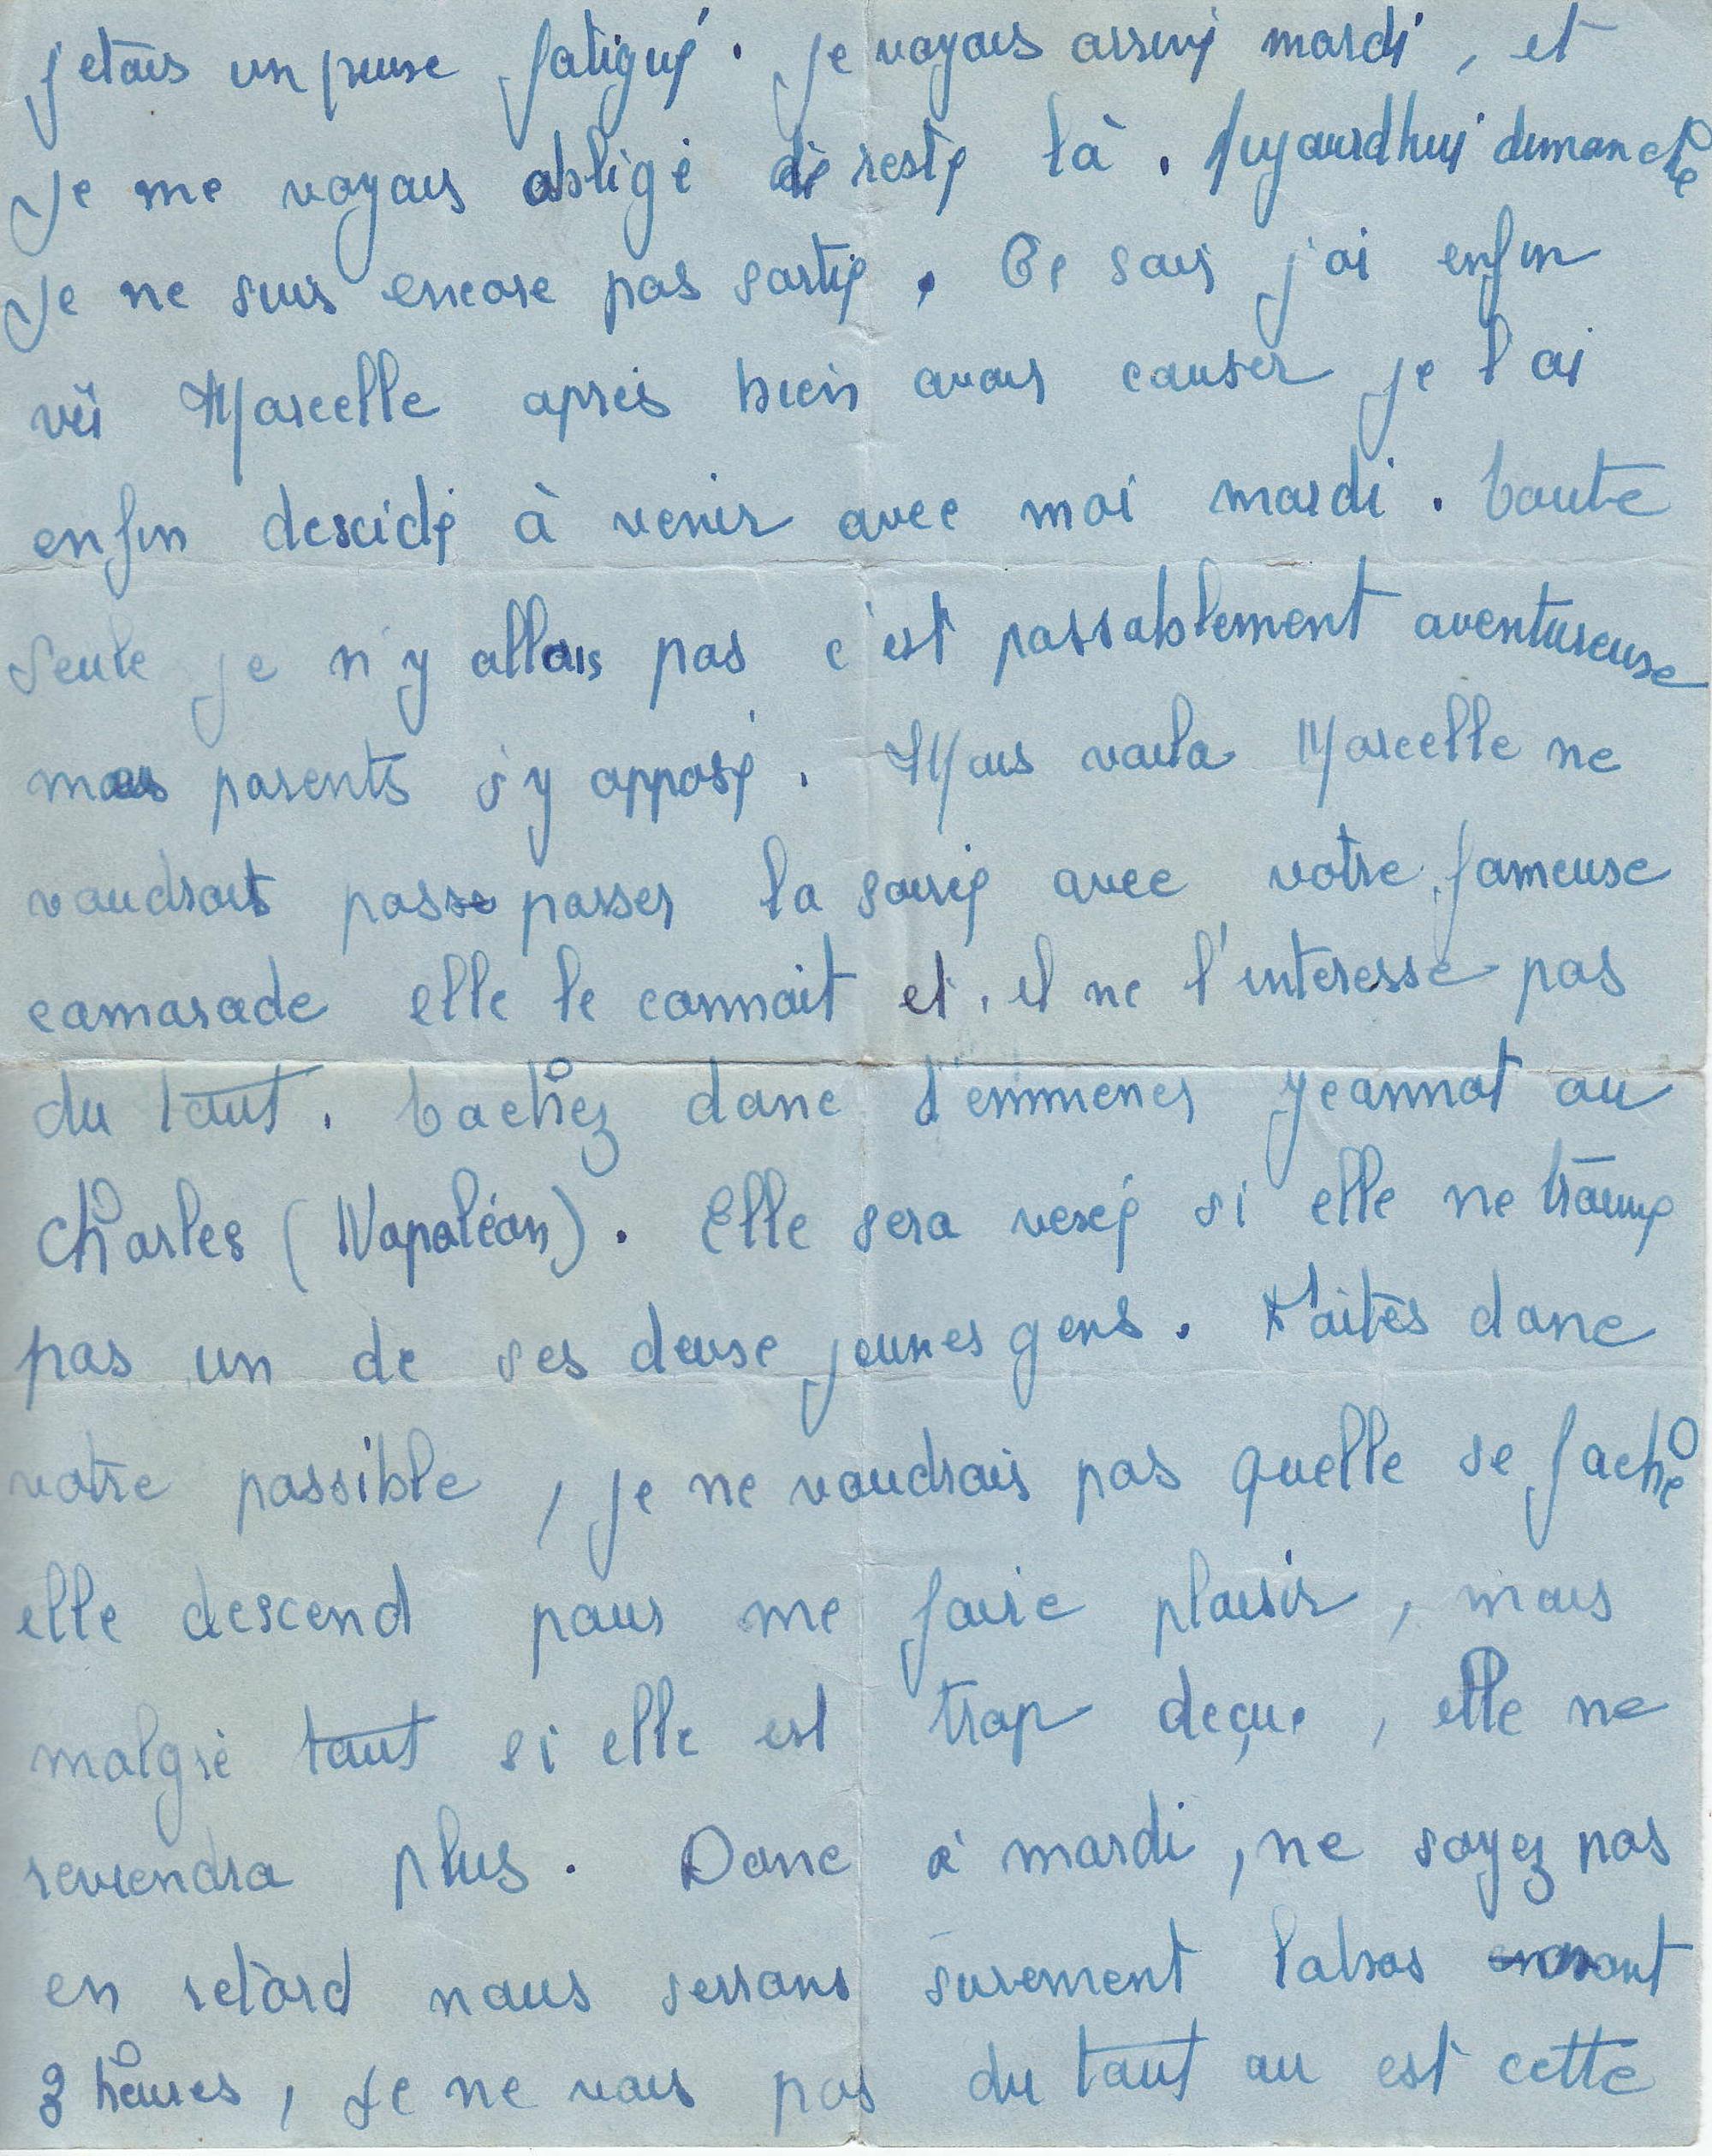 j'etais un peuxe fatigué. Je voyais arrivé mardi, et
Je me voyais obligé de resté là. Aujourdhui dimanche
Je ne suis encore pas sortie. Ce soir j'ai enfin
vû Marcelle après bien avoir causer je l'ai
enfin descidé à venir avec moi mardi. Toute
seule je n'y allais pas c'est passablement aventureuse
mes parents s'y opposé. Mais voila Marcelle ne
voudrait passe passer la soirée avec votre fameuse
camarade elle le connait et, il ne l'interesse pas
du tout. Tachez donc d'emmener Jeannot ou
Charles (Napoléon). Elle sera vexée si elle ne trouve
pas un de ses deuxe jeunes gens. Faites donc
votre possible, je ne voudrais pas quelle se fache
elle descend pour me faire plaisir, mais
malgré tout si elle est trop deçue, elle ne
reviendra plus. Donc à mardi, ne soyez pas
en retard nous serrons surement labas avant
3 heures, Je ne vois pas du tout ou est cette